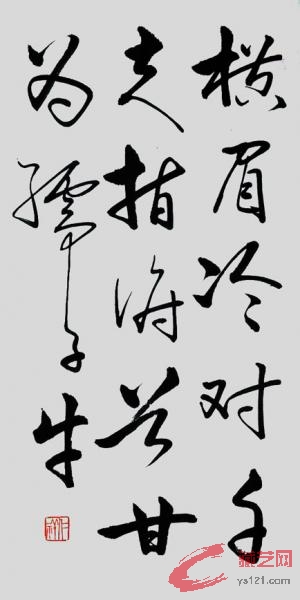 横眉冷对千
夫指俯首甘
为孺子牛
艺网
ys121.com